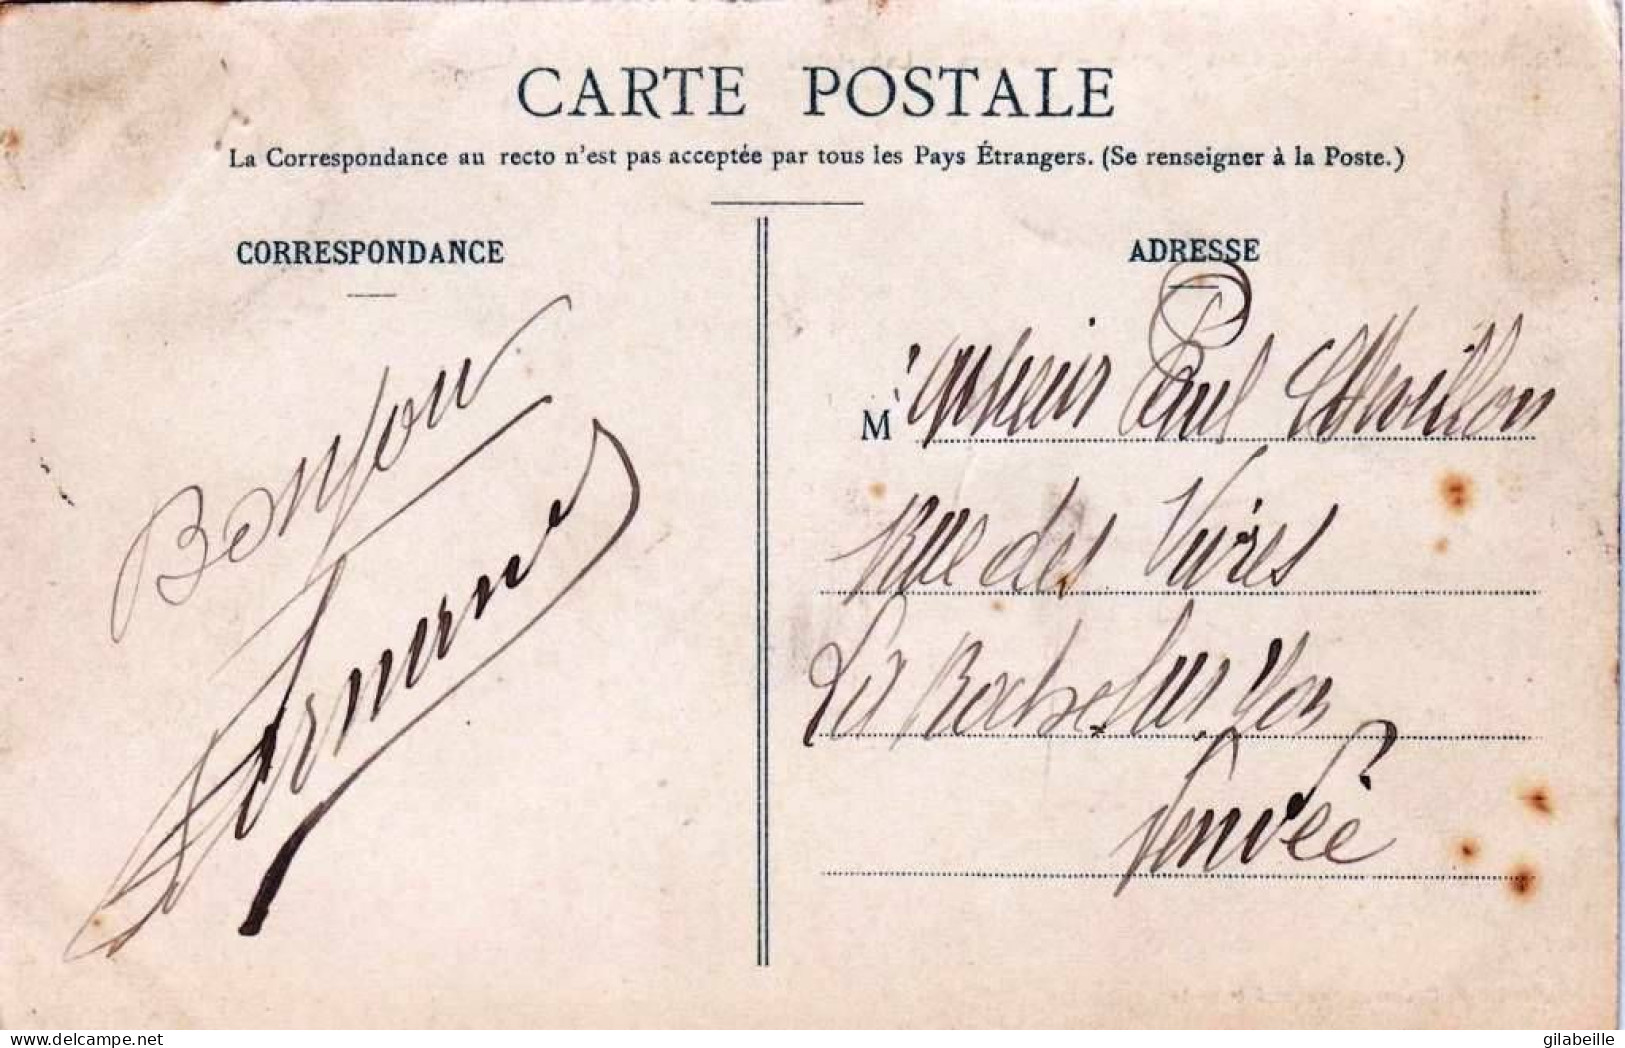 CARTE POSTALE
La Correspondance au recto n'est pas acceptée par tous les Pays Étrangers. (Se renseigner à la Poste.)
CORRESPONDANCE
ADRESSE
Bonjour
M onsieur Paul
Rue des Vivres
La Roche sur Yon
Vendée
delcampe.net
gilabeille